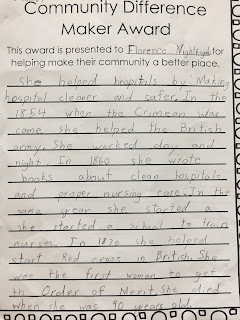 Community Difference
Maker Award
This award is presented to Florence Nightingale for
helping make their community a better place.
She helped hospitals by Making
hospital cleaner and safer. In the
1854 when the Crimean War
came she helped the British
army. She worked day and
night. In 1860 she wrote
books about clean hospitals
and proper nursing care. In the
same year she started a
she started a school to train
nurses. In 1870 she helped
start Red cross in British. She
was the first woman to get
th Order of Merit. She died
when she was 90 years old.